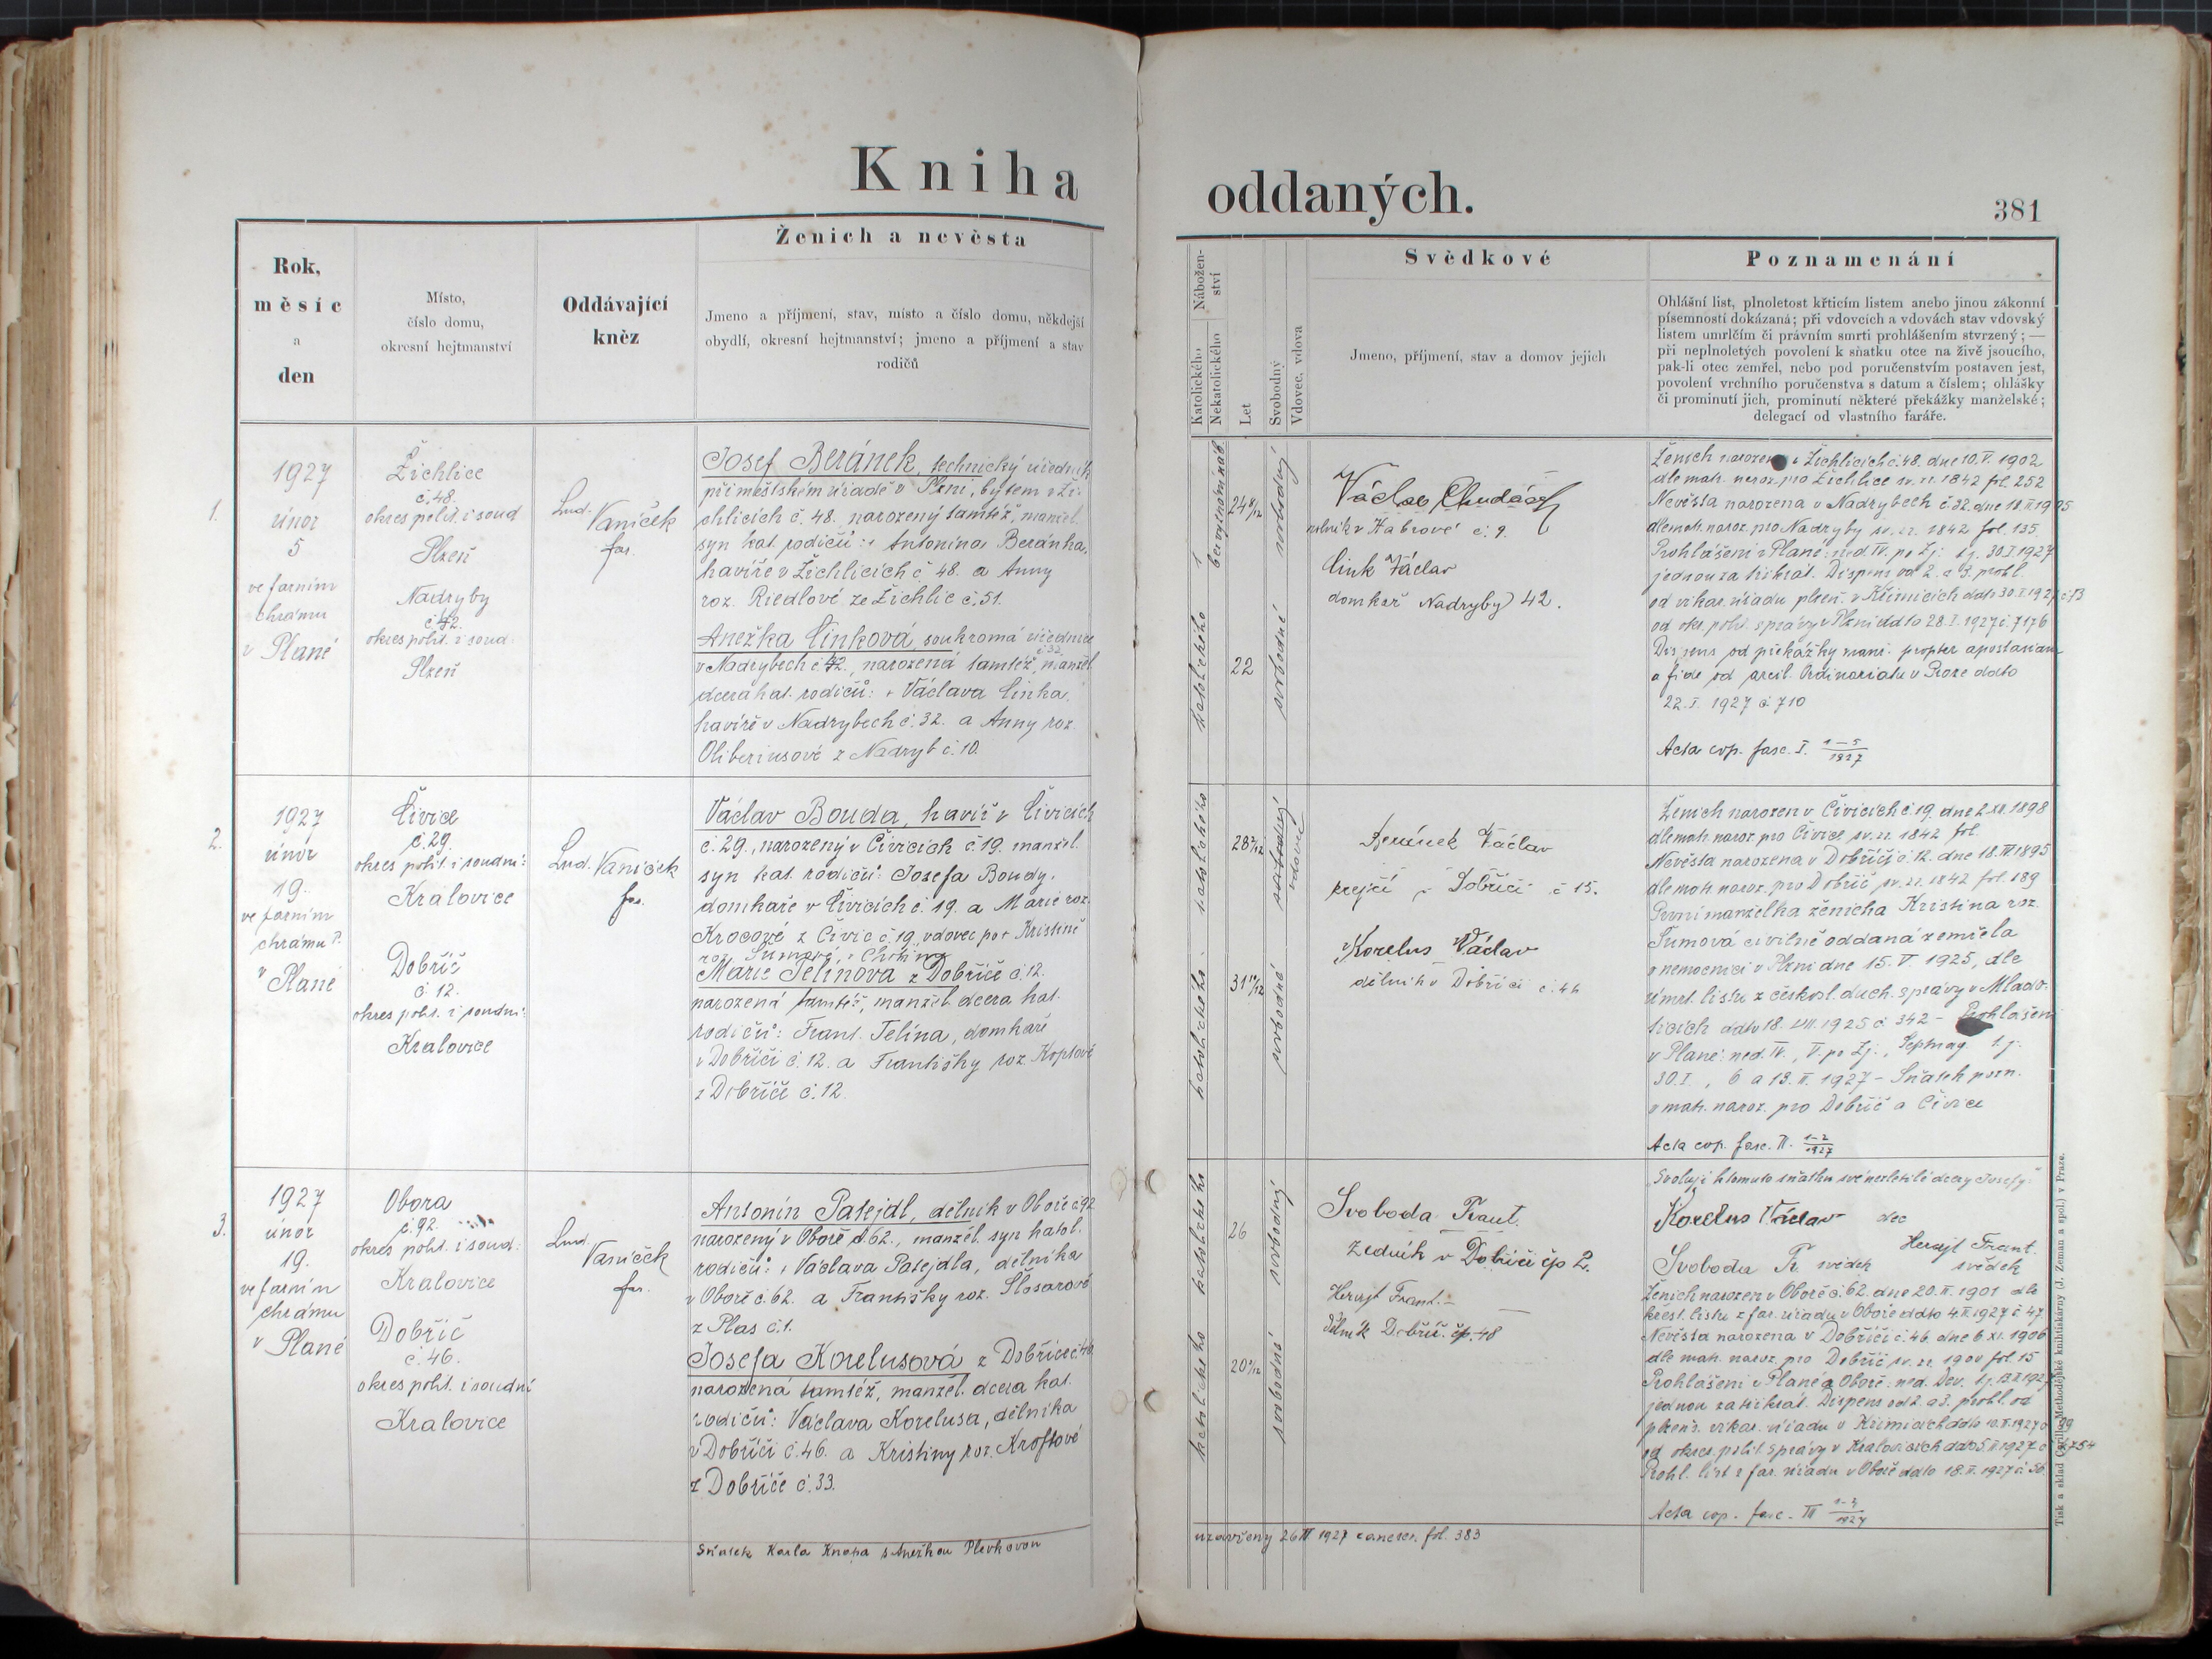 Kniha
oddaných.
381
Rok,
měsíc
a
den
Místo,
číslo domu,
okresní hejtmanství
Oddávající
kněz
Ženich a nevěsta
Jmeno a příjmení, stav, místo a číslo domu, někdejší
obydlí, okresní hejtmanství; jmeno a příjmení a stav
rodičů
Nábožen-
ství
Katolického
Nekatolického
Let
Svobodný
Vdovec, vdova
Svědkové
Jmeno, příjmení, stav a domov jejich
Poznamenání
Ohlášní list, plnoletost křticím listem anebo jinou zákonní
písemností dokázaná; při vdovcích a vdovách stav vdovský
listem umrlčím či právním smrti prohlášením stvrzený; —
při neplnoletých povolení k sňatku otce na živě jsoucího,
pak-li otec zemřel, nebo pod poručenstvím postaven jest,
povolení vrchního poručenstva s datum a číslem; ohlášky
či prominutí jich, prominutí některé překážky manželské;
delegací od vlastního faráře.
1.
1927
únor
5
ve farním
chrámu
v Plané
Žichlice
č. 48.
okres polit. i soud
Plzeň
Nadryby
okres polit. i soud.
Plzeň
Lud. Vaníček
far.
Josef Beránek, technický úředník
při městském úřadě v Plzni, bytem v Ži-
chlicích č. 48. narozený tamtéž, manžel.
syn kat. rodičů: † Antonína Beránka,
havíře v Žichlicích č. 48. a Anny
roz. Riedlové ze Žichlic č. 51.
Anežka Činková, soukromá úřednice
v Nadrybech č. 42., narozená tamtéž č. 32, manžel.
dcera kat. rodičů: † Václava Činka,
havíře v Nadrybech č. 32. a Anny roz.
Oliberiusové z Nadryb č. 10.
bez vyznání náb.
katolického
24 8/12
22
svobodný
svobodná
Václav Chudáček
rolník v Habrové č. 9.
Čink Václav
domkař Nadryby 42.
Ženich narozen v Žichlicích č. 48. dne 10. V. 1902
dle matr. naroz. pro Žichlice sv. zz. 1842 fol. 252
Nevěsta narozena v Nadrybech č. 32. dne 18. II. 1905
dle matr. naroz. pro Nadryby sv. zz. 1842 fol. 135.
Prohlášení v Plané: ned. IV. po Zj: t.j. 30. I. 1927
jednou za třikrát. Dispens od 2. a 3. prohl.
od vikar. úřadu plzeň. v Křimicích ddto 30. I. 1927 č. 73
od okr. polit. správy v Plzni ddto 28. I. 1927 č. 7176
Dispens od překážky manž. propter apostasiam
a fide od arcib. Ordinariatu v Praze ddto
22. I. 1927 č. 710
Acta cop. fasc. I. 1–5/1927
2.
1927
únor
19.
ve farním
chrámu P.
v Plané
Čivice
č. 29.
okres polit. i soudní:
Kralovice
Dobříč
č. 12.
okres polit. i soudní:
Kralovice
Lud. Vaníček
far.
Václav Bouda, havíř v Čivicích
č. 29., narozený v Čivicích č. 19. manžel.
syn kat. rodičů: Josefa Boudy,
domkaře v Čivicích č. 19. a Marie roz.
Krocové z Čivic č. 19., vdovec po † Kristině
roz. Šůmové, z
Marie Telínová z Dobříče č. 12.
narozená tamtéž, manžel. dcera kat.
rodičů: Frant. Telína, domkaře
v Dobříči č. 12. a Františky roz. Koptové
z Dobříče č. 12.
katolického
katolického
28 2/12
31 11/12
svobodný
vdovec
svobodná
Beránek Václav
krejčí v Dobříči č 15.
Korelus Václav
dělník v Dobříči č. 46
Ženich narozen v Čivicích č. 19. dne 2. XII. 1898
dle matr. naroz. pro Čivice sv. zz. 1842 fol.
Nevěsta narozena v Dobříči č. 12. dne 18. III. 1895
dle matr. naroz. pro Dobříč sv. zz. 1842 fol. 189
První manželka ženicha Kristina roz.
Šůmová civilně oddaná zemřela
v nemocnici v Plzni dne 15. V. 1925, dle
úmrt. listu z českosl. duch. správy v Mlado-
ticích ddto 18. VIII. 1925 č. 342 – Prohlášení
v Plané: ned. IV., V. po Zj., Septuag. t.j.
30. I., 6 a 13. II. 1927 – Sňatek pozn.
v matr. naroz. pro Dobříč a Čivice
Acta cop. fasc. II. 1–2/1927
3.
1927
únor
19.
ve farním
chrámu
v Plané
Obora
č. 92.
okres polit. i soud:
Kralovice
Dobříč
č. 46.
okres polit. i soudní
Kralovice
Lud. Vaníček
far.
Antonín Patejdl, dělník v Oboře č. 92
narozený v Oboře č. 62., manžel. syn katol.
rodičů: † Václava Patejdla, dělníka
v Oboře č. 62. a Františky roz. Šlosarové
z Plas č. 1.
Josefa Korelusová z Dobříče č. 46
narozená tamtéž, manžel. dcera kat.
rodičů: Václava Korelusa, dělníka
v Dobříči č. 46. a Kristiny roz. Kroftové
z Dobříče č. 33.
katolického
katolického
26
20
svobodný
svobodná
Svoboda Frant.
zedník v Dobříči čp 2.
Herejt Frant.
dělník Dobříč. čp. 48
Svoluji k tomuto sňatku své nezletilé dcery Josefy:
Korelus Václav otec
Herejt Frant.
svědek
Svoboda Fr. svědek
Ženich narozen v Oboře č. 62. dne 20. II. 1901 dle
křest. listu z far. úřadu v Oboře ddto 4. II. 1927 č. 47.
Nevěsta narozena v Dobříči č. 46. dne 6. XI. 1906
dle matr. naroz. pro Dobříč sv. zz. 1900 fol. 15
Prohlášení v Plané a Oboře: ned. Dev. t.j. 13. II. 1927
jednou za třikrát. Dispens od 2. a 3. prohl. od
plzeňs. vikar. úřadu v Křimicích ddto 10. II. 1927 č. 99
od okres. polit. správy v Kralovicích ddto 5. II. 1927 č.
Prohl. list z far. úřadu v Oboře ddto 18. II. 1927 č. 56.
Acta cop. fasc. III 1–4/1927
Sňatek Karla Knapa s Anežkou Plevkovou
uzavřený 26 III 1927 zanesen. fol. 383
Tisk a sklad Cyrillo-Methodějské knihtiskárny (J. Zeman a spol.) v Praze.